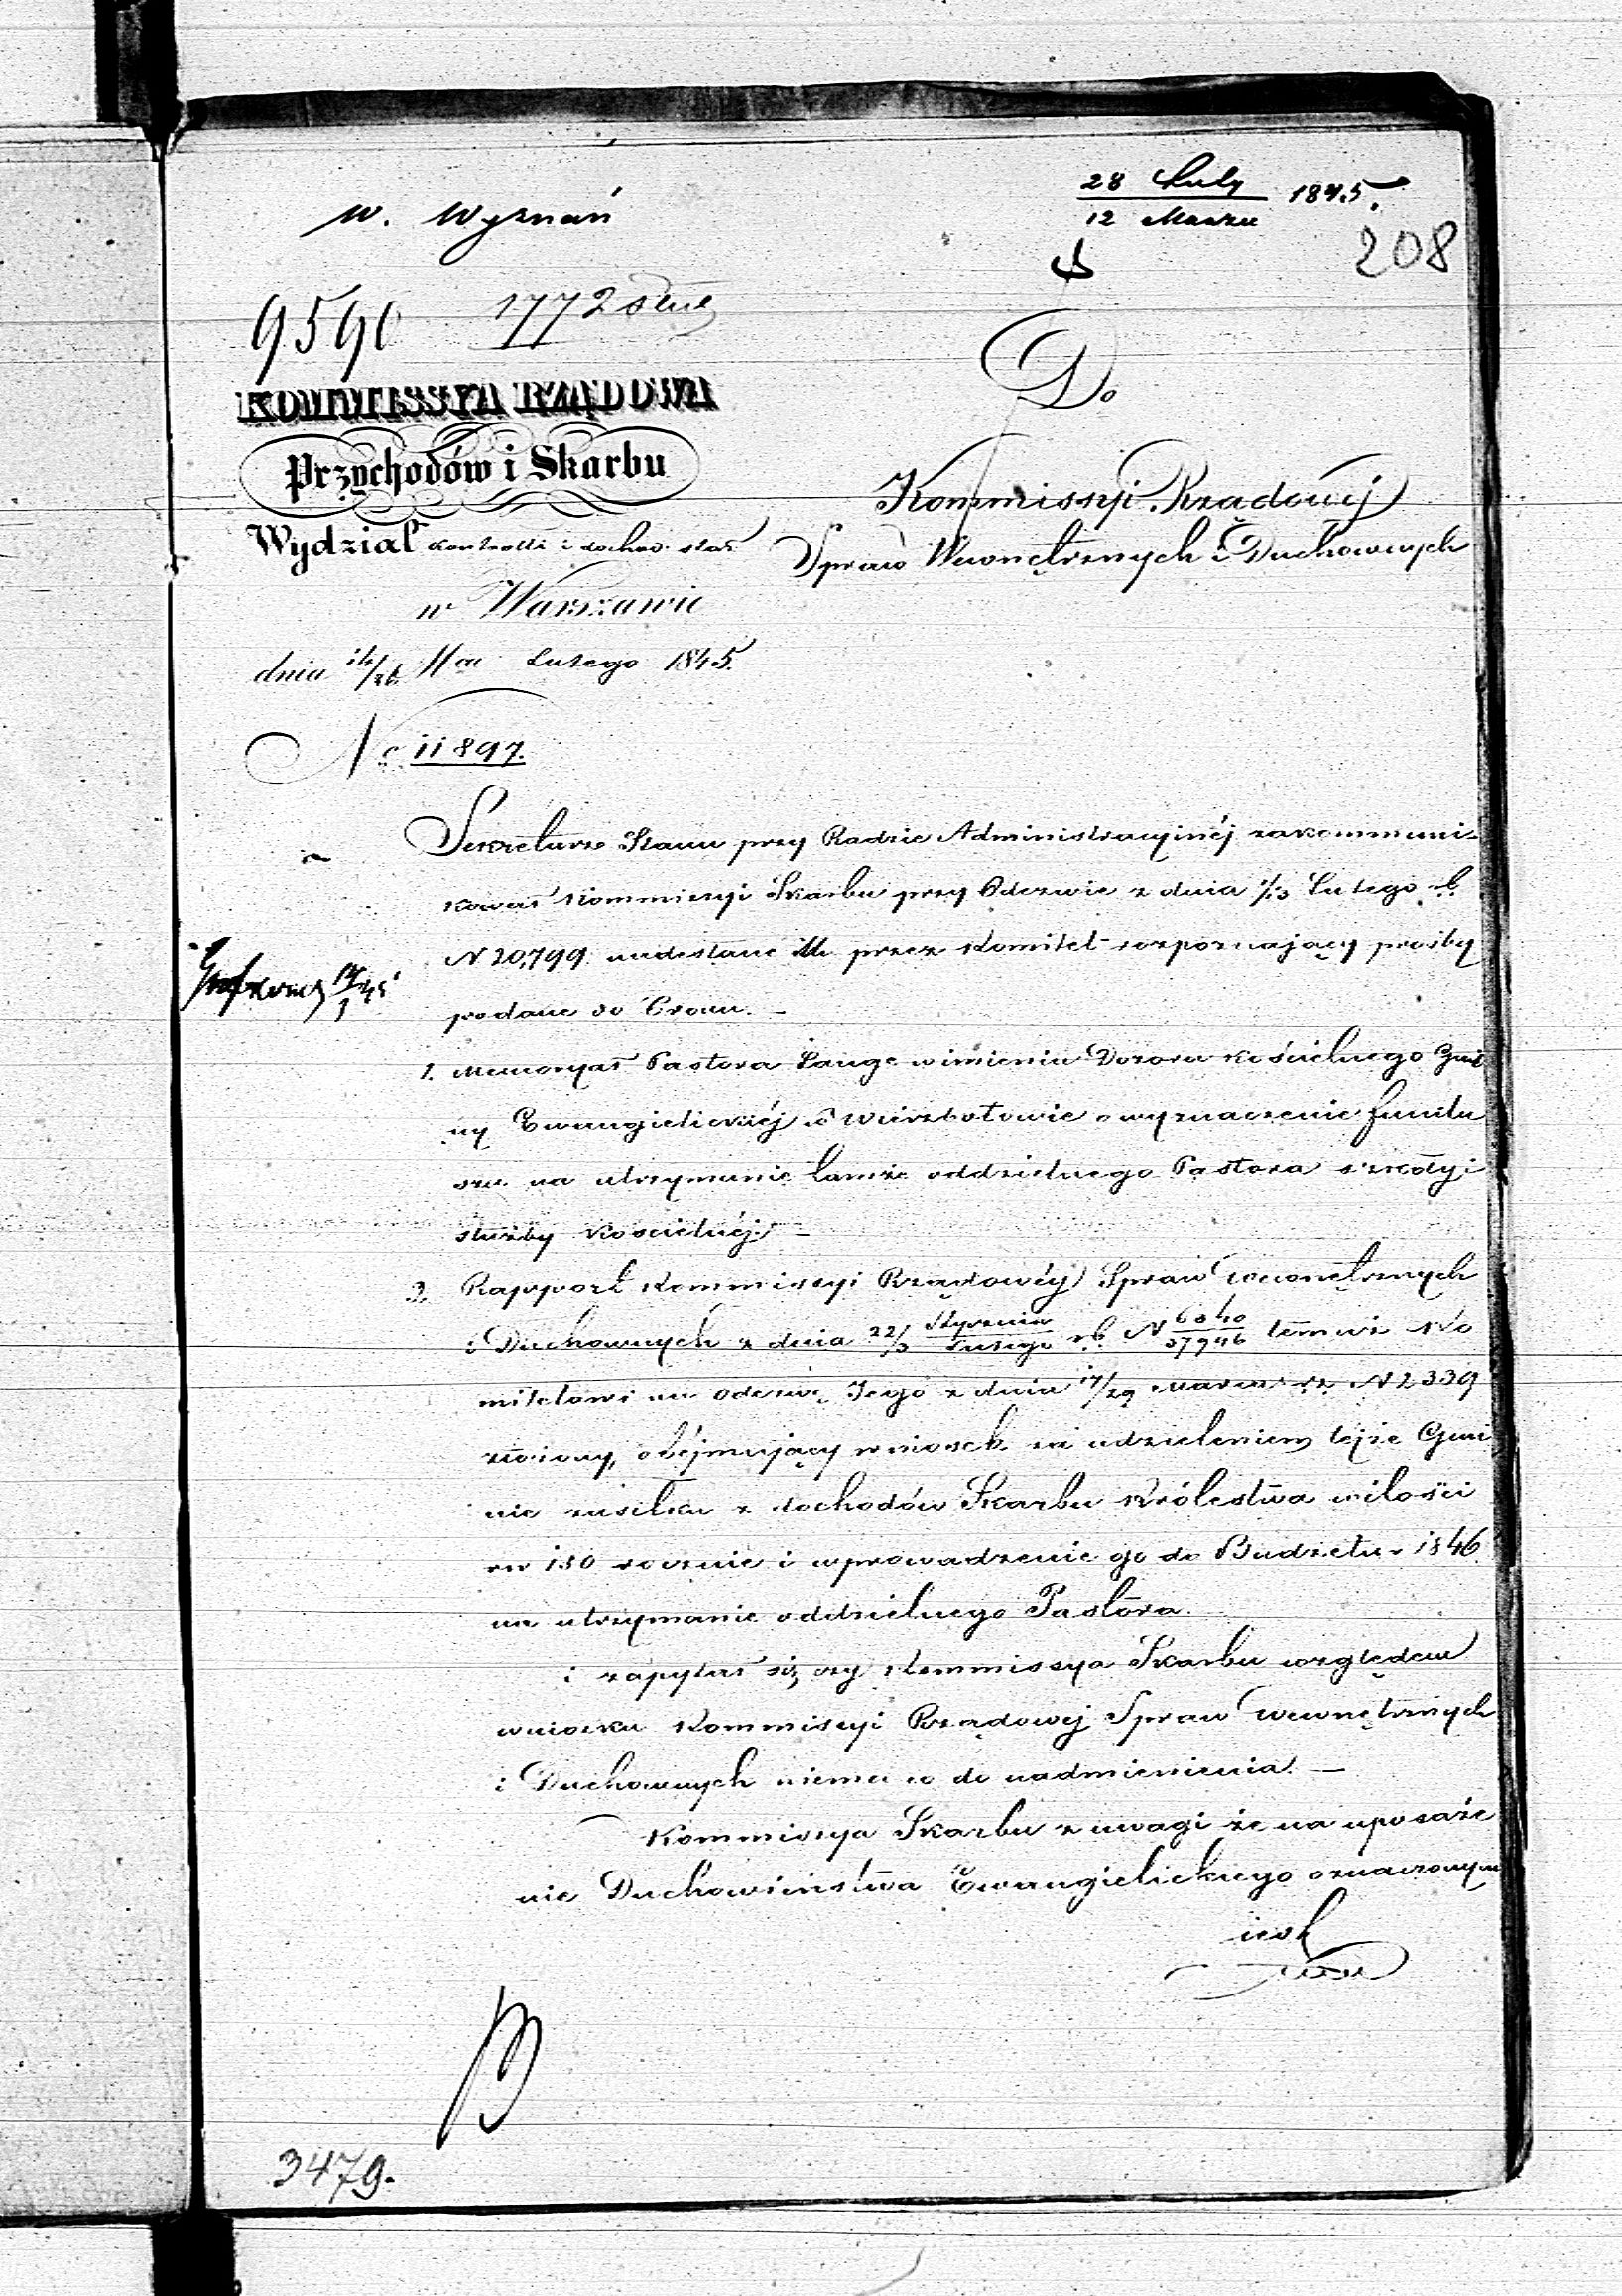 W. Wyznań
28 Luty
12 Marzca 1845.
208
9590 1772
KOMMISSYA RZĄDOWA
Przychodów i Skarbu
Wydział Kontrolli i dochod. stał.
w Warszawie
dnia 14/26 Mca Lutego 1845.
No 11897.
Do
Kommissyi Rządowéj
Spraw Wewnętrznych i Duchownych
Sekretarz Stanu przy Radzie Administracyinéj zakommuni-
kował Kommissyi Skarbu przy Odezwie z dnia 1/13 Lutego r. b.
N 20,799 nadesłane Mu przez Komitet rozpoznający prośby
podane do Tronu. —
1. Memoryał Pastora Lange w imieniu Dozoru kościelnego Gmi
ny Ewangielickiéj w Wierzbołowie o wyznaczenie fundu
szu na utrzymanie tamże oddzielnego Pastora szkoły i
służby kościelnéj. —
2. Rapport Kommissyi Rządowéj Spraw Wewnętrznych
i Duchownych z dnia 22/3 Stycznia/Lutego r. b. N 6840/37946 temuż Ko
mitetowi na odezwę Jego z dnia 17/29 Marca N 2339
złożony, obéjmujący wniosek za udzieleniem téjże Gmi
nie zasiłku z dochodów Skarbu Królestwa w ilości
rsr 150 rocznie i wprowadzenie go do Budżetu r. 1846
na utrzymanie oddzielnego Pastora.
i zapytał się, czy Kommissya Skarbu względem
wniosku Kommissyi Rządowéj Spraw Wewnętrznych
i Duchownych niema co do nadmienienia. —
Kommissya Skarbu z uwagi że na uposaże
nie Duchowieństwa Ewangielickiego oznaczonym
jest
3479.